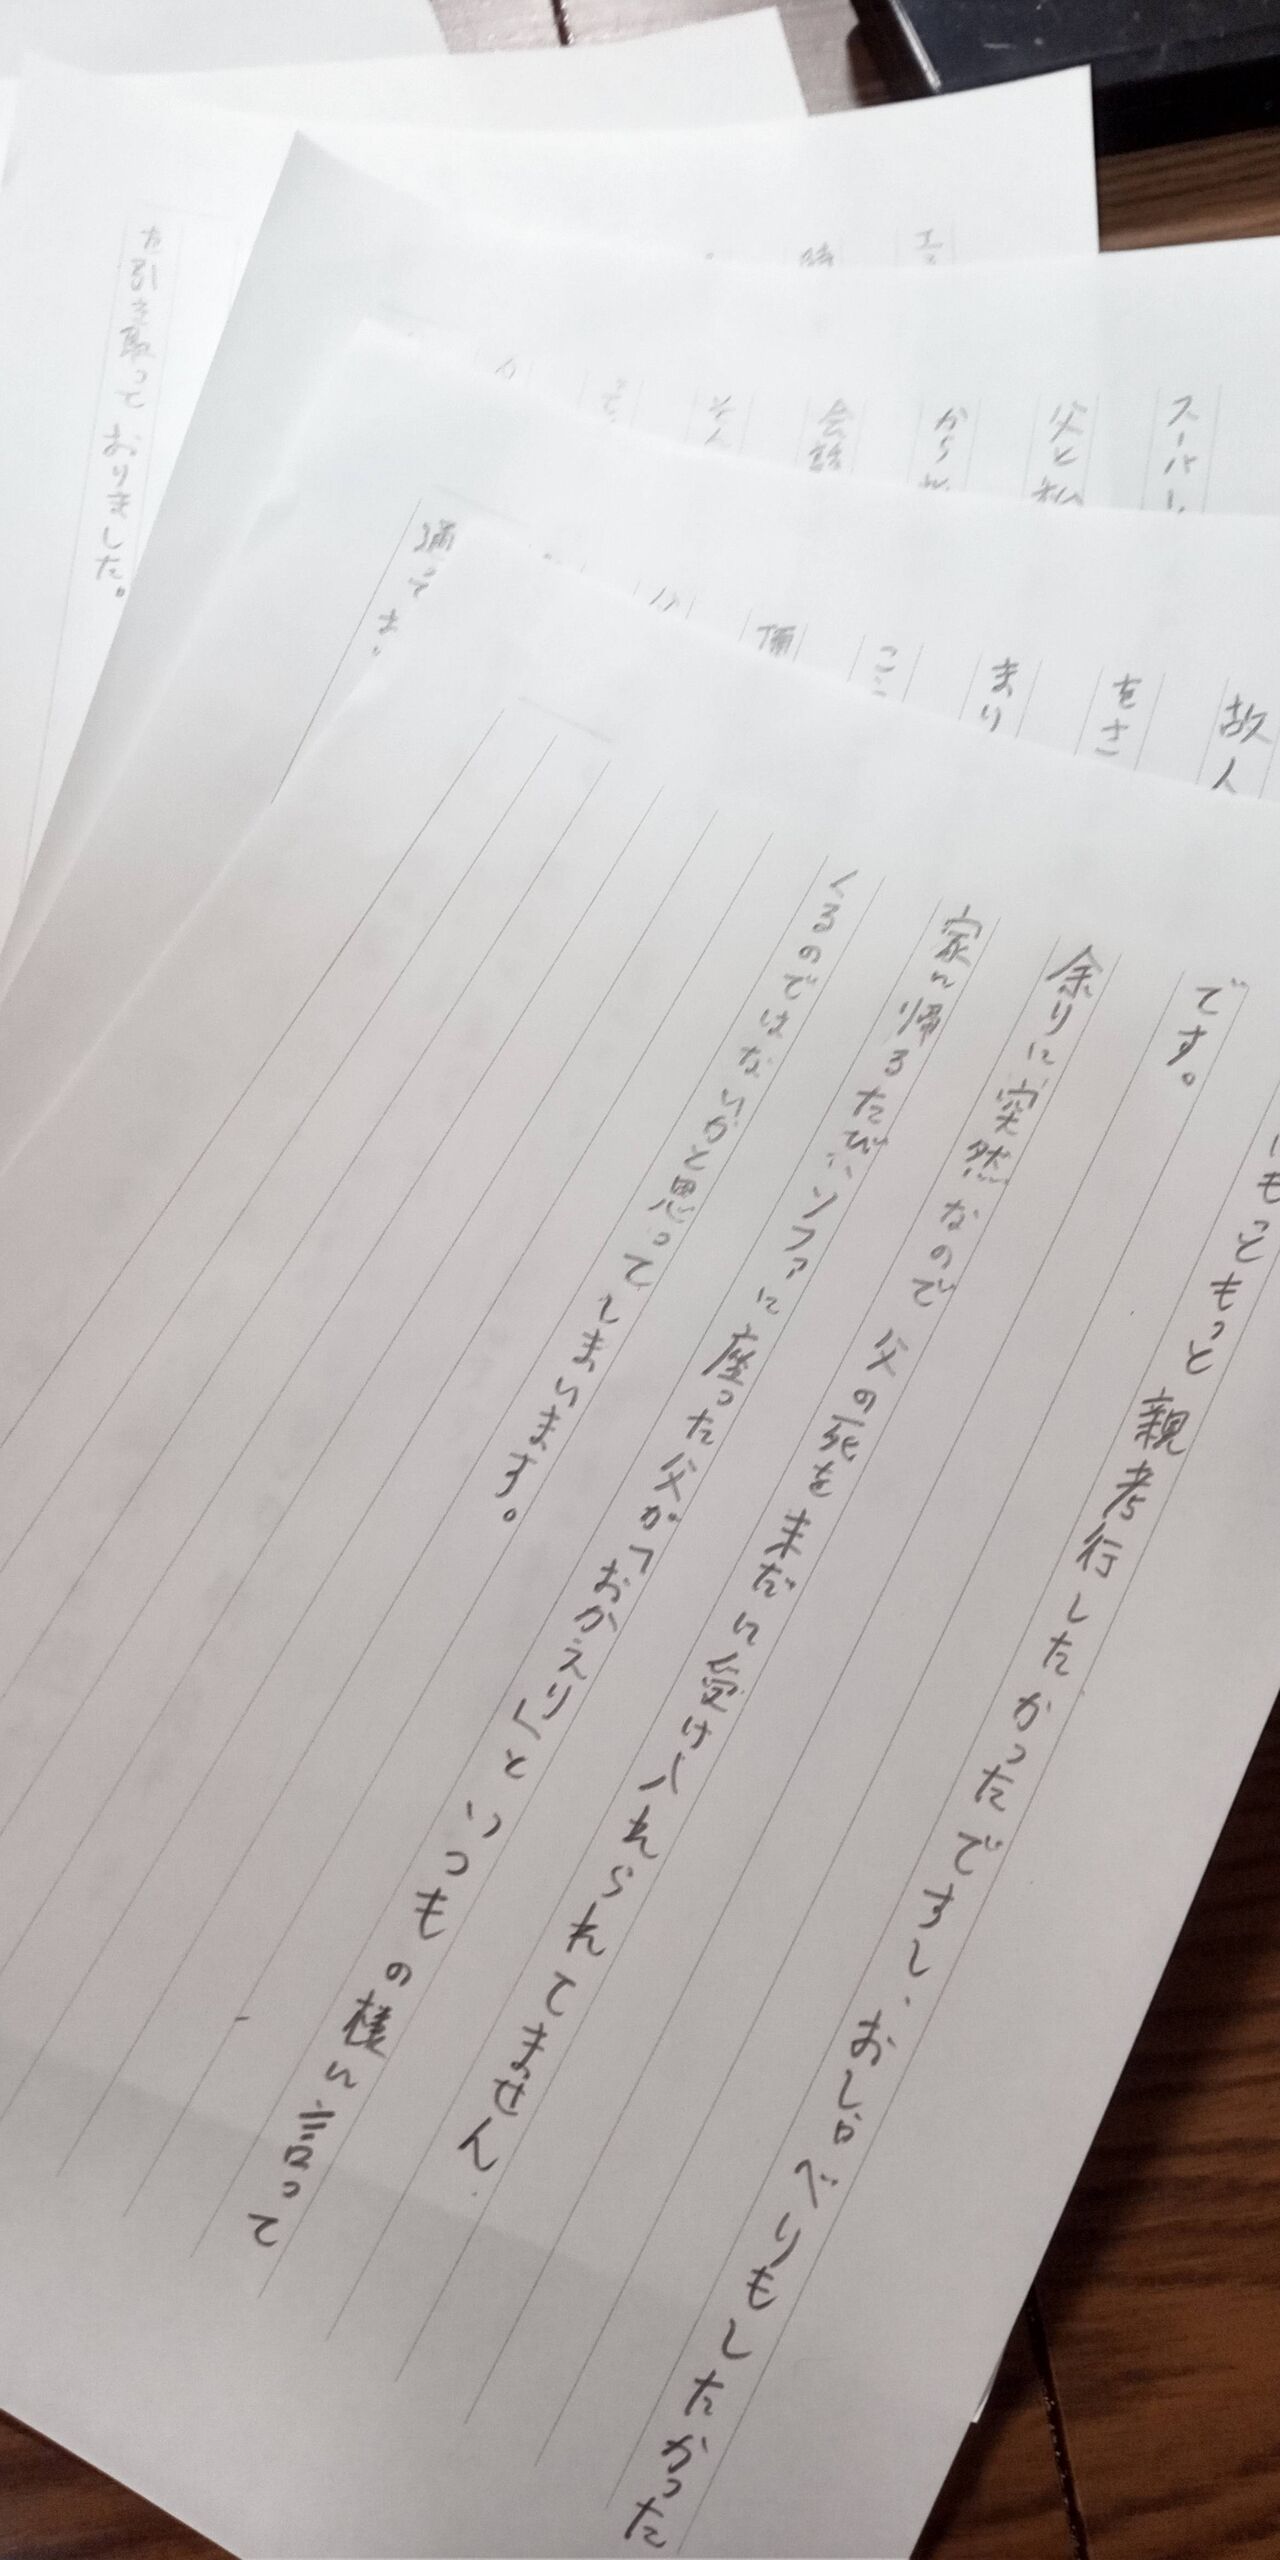 にもっともっと親孝行したかったですし、おしゃべりもしたかった
です。
余りに突然なので父の死を未だに受け入れられてません
家に帰るたびにソファに座った父が「おかえり」といつもの様に言って
くるのではないかと思ってしまいます。
故人
をさ
まり
価
通って
スーパー
父と私
から私
会話
時
ておりました。